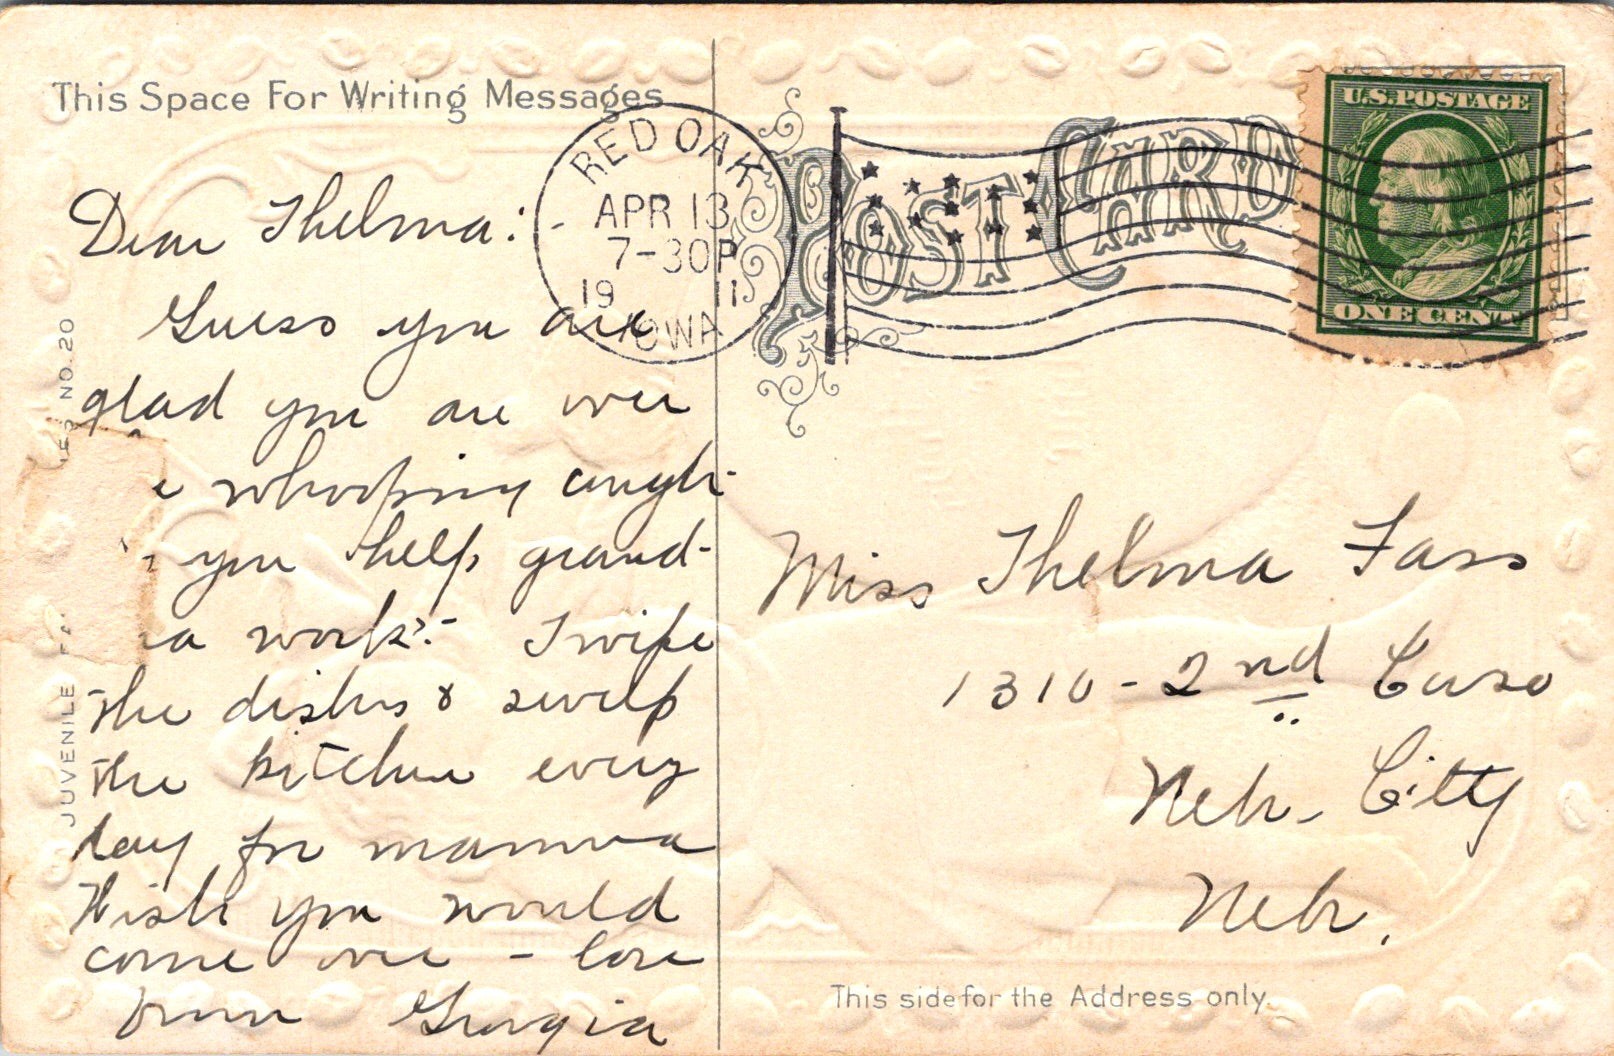 This Space For Writing Messages
Dear Thelma:-
Guess you are
glad you are over
whooping cough-
you help grand-
ma work?- I wipe
the dishes & sweep
the kitchen every
day for mamma
Wish you would
come over - love
from Georgia
JUVENILE
NO. 20
RED OAK
APR 13
7-30P
19 11
IOWA
POST CARD
U.S. POSTAGE
ONE CENT
Miss Thelma Fass
1310 - 2nd Corso
Nebr. City
Nebr.
This side for the Address only.